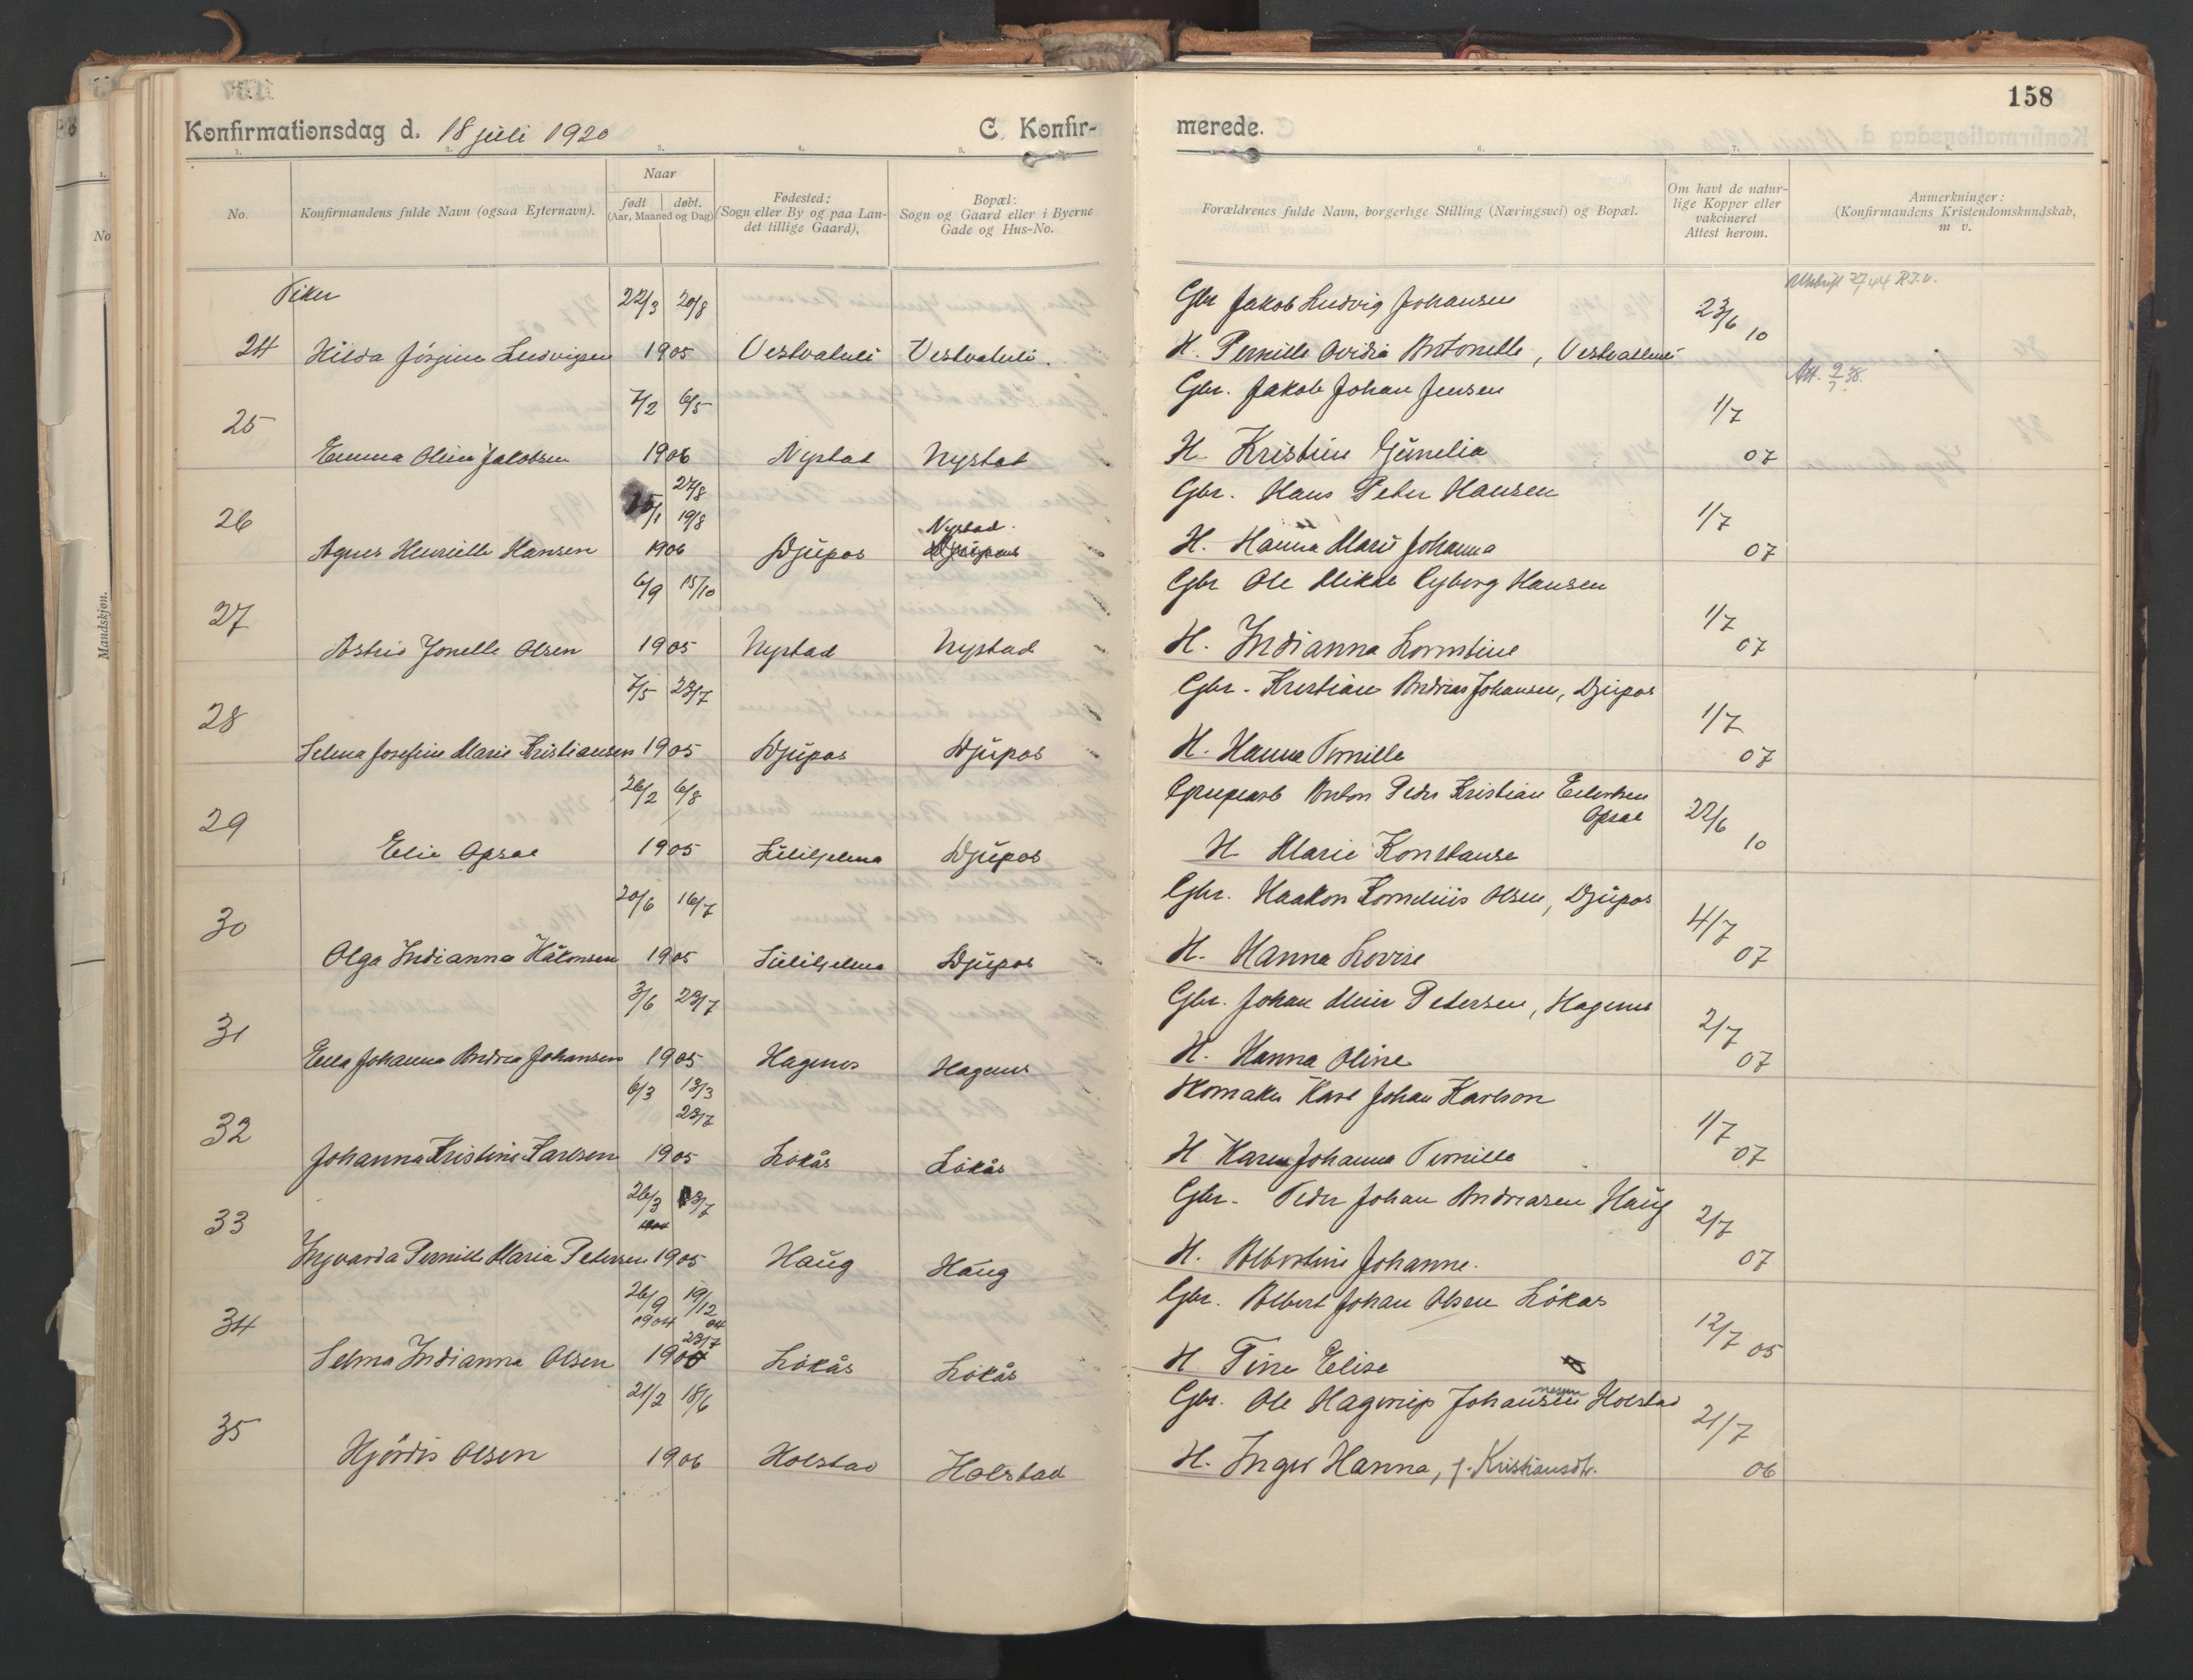 158
Konfirmationsdag d. 18 juli 1920
C. Konfir-
merede.
1. 2. 3. 4. 5. 6. 7.
No.
Konfirmandens fulde Navn (ogsaa Efternavn).
Naar
født døbt.
(Aar, Maaned og Dag)
Fødested:
(Sogn eller By og paa Lan-
det tillige Gaard).
Bopæl:
Sogn og Gaard eller i Byerne
Gade og Hus-No.
Forældrenes fulde Navn, borgerlige Stilling (Næringsvei) og Bopæl.
Om havt de natur-
lige Kopper eller
vakcineret
Attest herom.
Anmerkninger:
(Konfirmandens Kristendomskundskab,
m v.
Piker 22/3 20/8 Gbr Jakob Ludvig Johansen 23/6 10
24 Hilda Jörgine Ludvigsen 1905 Vestvatuli Vestvatuli. H. Pernille Ovidia Antonette, Vestvatnli
7/2 6/5 Gbr. Jakob Johan Jensen 1/7 Att. 9/7 38.
25 Emma Oline Jakobsen 1906 Nystad Nystad H. Kristine Gunelia 07
27/8
15/1 19/8 Gbr. Hans Peter Hansen 1/7
26 Agnes Henriette Hansen 1906 Djupos Nystad. H. Hanna Marie Johanna 07
6/9 15/10 Gbr Ole Mikal Nyborg Hansen 1/7
27 Astrid Jonelle Olsen 1905 Nystad Nystad H. Indianna Lorentine 07
7/5 23/7 Gbr. Kristian Andreas Johansen, Djupos 1/7
28 Selma Josefine Marie Kristiansen 1905 Djupos Djupos H. Hanna Pernille 07
26/2 6/8 Grubearb Anton Peder Kristian Eilertsen Opsal 22/6
29 Elie Opsal 1905 Sulitjelma Djupos H Marie Konstanse 10
20/6 16/7 Gbr. Haakon Kornelius Olsen, Djupos 4/7
30 Olga Indianna Håkonsen 1905 Sulitjelma Djupos H. Hanna Lovise 07
3/6 23/7 Gbr. Johan Meier Petersen, Hagenes 2/7
31 Erna Johanna Andrea Johansen 1905 Hagenes Hagenes H. Hanna Oline 07
6/3 13/3 Skomaker Karl Johan Karlson
23/7
32 Johanna Kristine Karlsen 1905 Lökås Lökås H Karen Johanna Pernille 1/7 07
26/3 23/7 Gbr. Peder Johan Andreasen Haug 2/7
33 Ingvarda Pernille Maria Petersen 1905 Haug Haug H. Albertine Johanne. 07
26/9 19/12 Gbr. Albert Johan Olsen Lökås
1904 04
23/7
34 Selma Indianna Olsen 1904 Lökås Lökås H Tine Elise 12/7 05
21/2 18/6 Gbr. Ole Hagerup Johannesen Holstad 21/7
35 Hjördis Olsen 1906 Holstad Holstad H. Inger Hanna, f. Kristiansdtr. 06
No
Mandskjøn.